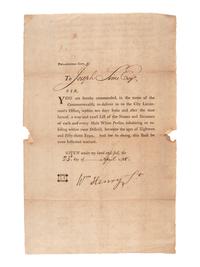 PHILADELPHIA
To Joseph Esqr.
SIR,
YOU are hereby commanded, in the name of the
Commonwealth, to deliver to me at the City Lieute-
nant's Office, within ten days from and after the date
hereof, a true and exact List of the Names and Surnames
of each and every Male White Person, inhabiting or re-
siding within your District, between the ages of Eighteen
and Fifty-three Years. And for so doing, this shall be
your sufficient warrant.
GIVEN under my hand and seal, the
25 day of April 178
Wm Henry